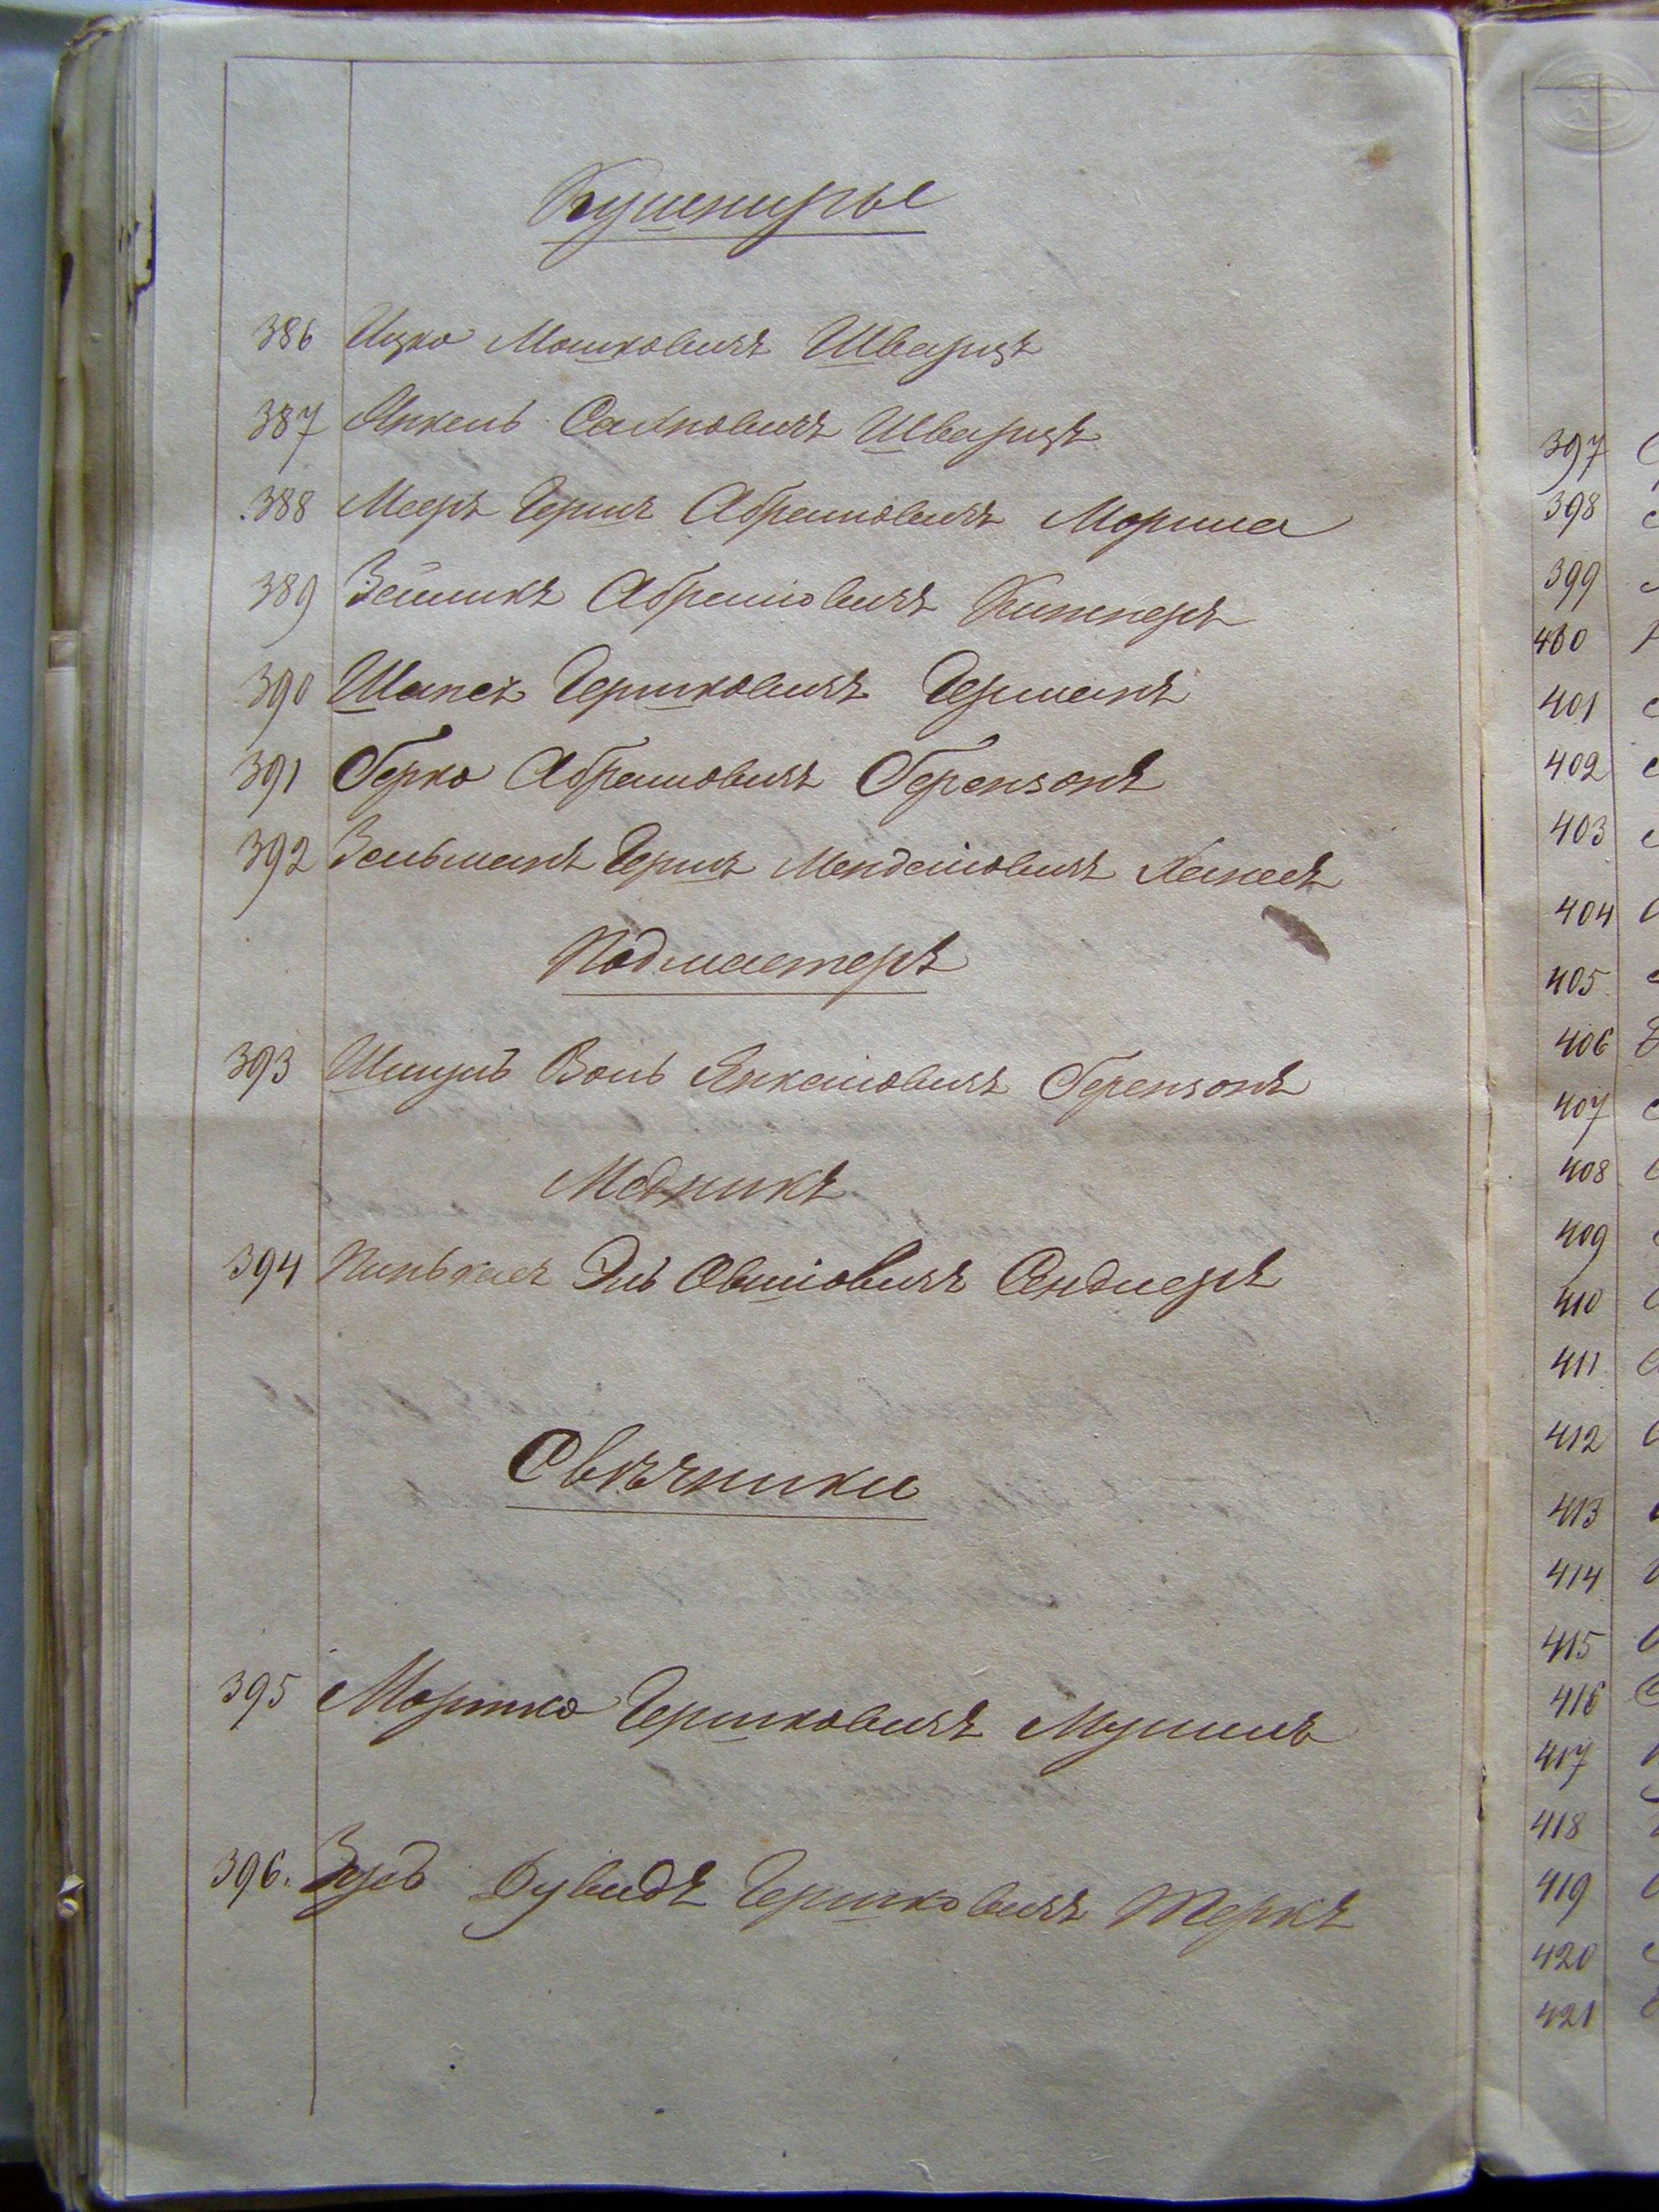 Кушниры
386 Ицко Мошковичъ Шварцъ
387 Янкель Салиовичъ Шварцъ
388 Мееръ Гершъ Абрамовичъ
389 Зейликъ Абрамовичъ
390 Шапсъ Гершковичъ Германъ
391 Берко Абрамовичъ Берензонъ
392 Зельманъ Гершъ Менделіовичъ
Подмастеръ
393 Шмуль Воль Янкеліовичъ Берензонъ
Медникъ
394 Пинькасъ Эль Овшіовичъ Сендлеръ
Свѣчники
395 Мортко Гершковичъ
396. Дувидъ Гершковичъ Меркъ
397
398
399
400
401
402
403
404
405
406
407
408
409
410
411
412
413
414
415
416
417
418
419
420
421